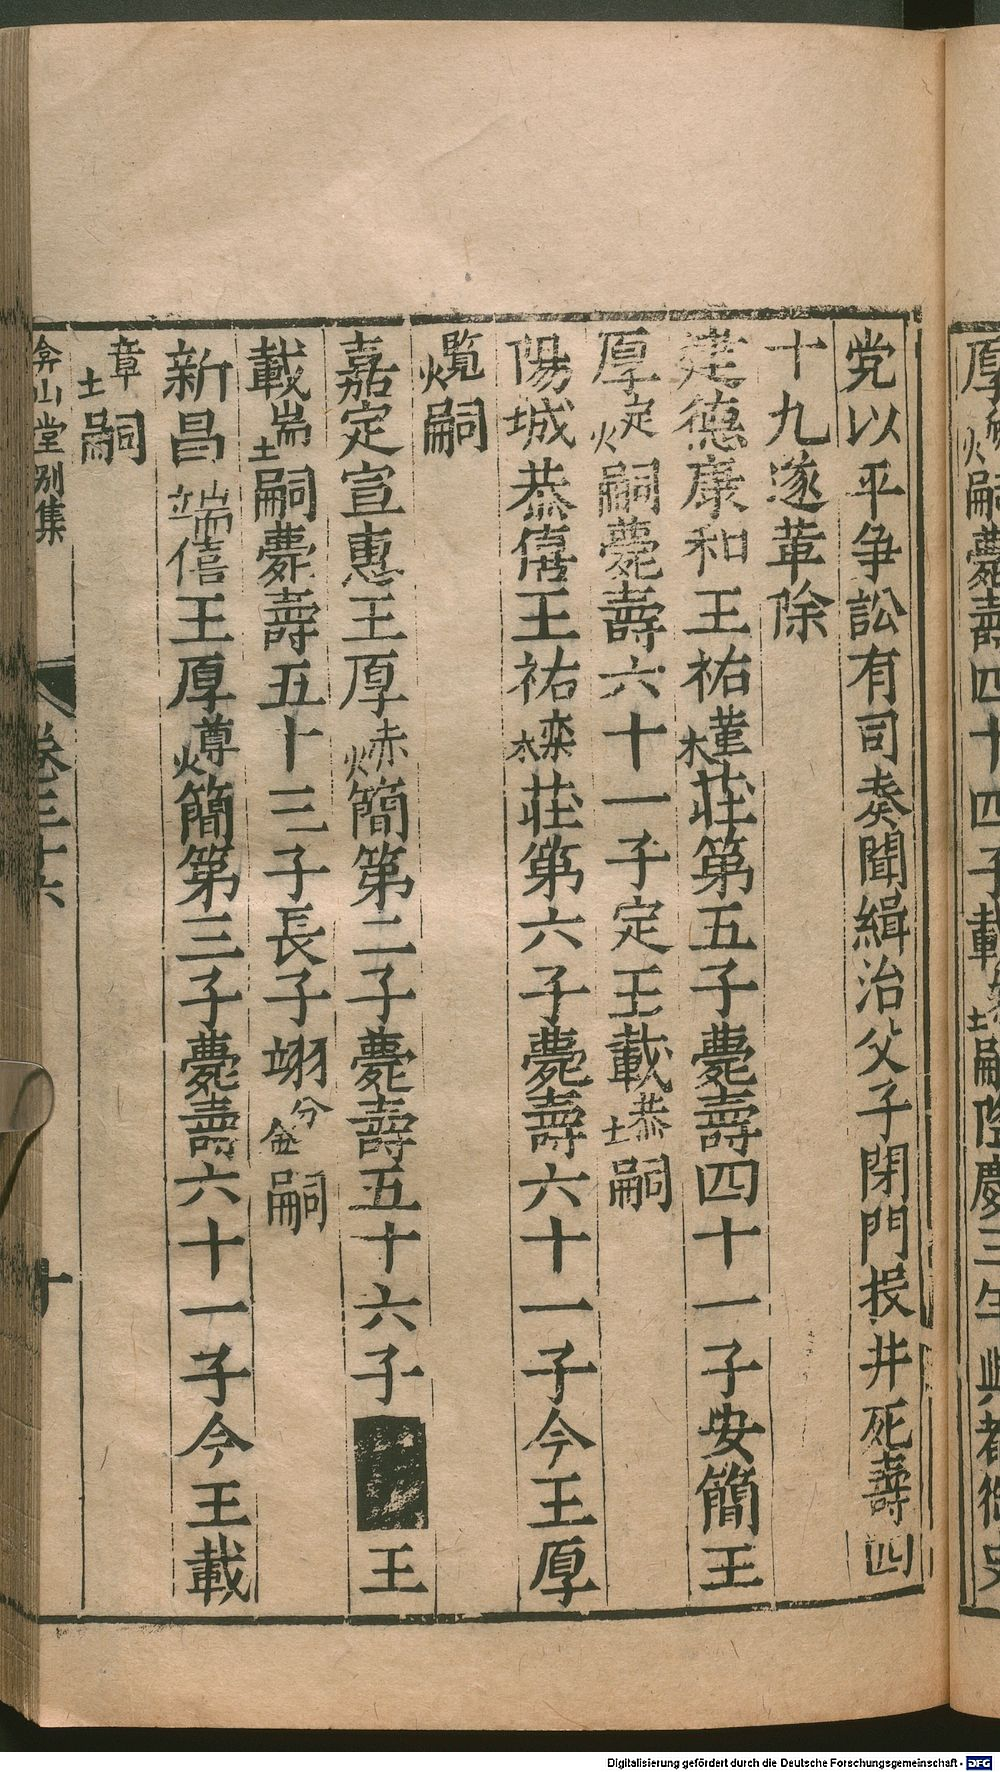 党以平争訟有司奏聞緝治父子閉門投井死壽四
十九遂革除
建德康和王祐 董木 莊第五子薨壽四十一子安簡王
厚 定火 嗣薨壽六十一子定王載 恭土 嗣
陽城恭僖王祐 木 莊第六子薨壽六十一子今王厚
覧火 嗣
嘉定宣惠王厚 赤火 簡第二子薨壽五十六子 王
載 耑土 嗣薨壽五十三子長子翊 分金 嗣
新昌端僖王厚 尊火 簡第三子薨壽六十一子今王載
章土 嗣
弇山堂别集 卷三十六 十
嗣薨壽四十四子載 土 嗣隆慶三年
Digitalisierung gefördert durch die Deutsche Forschungsgemeinschaft - DFG